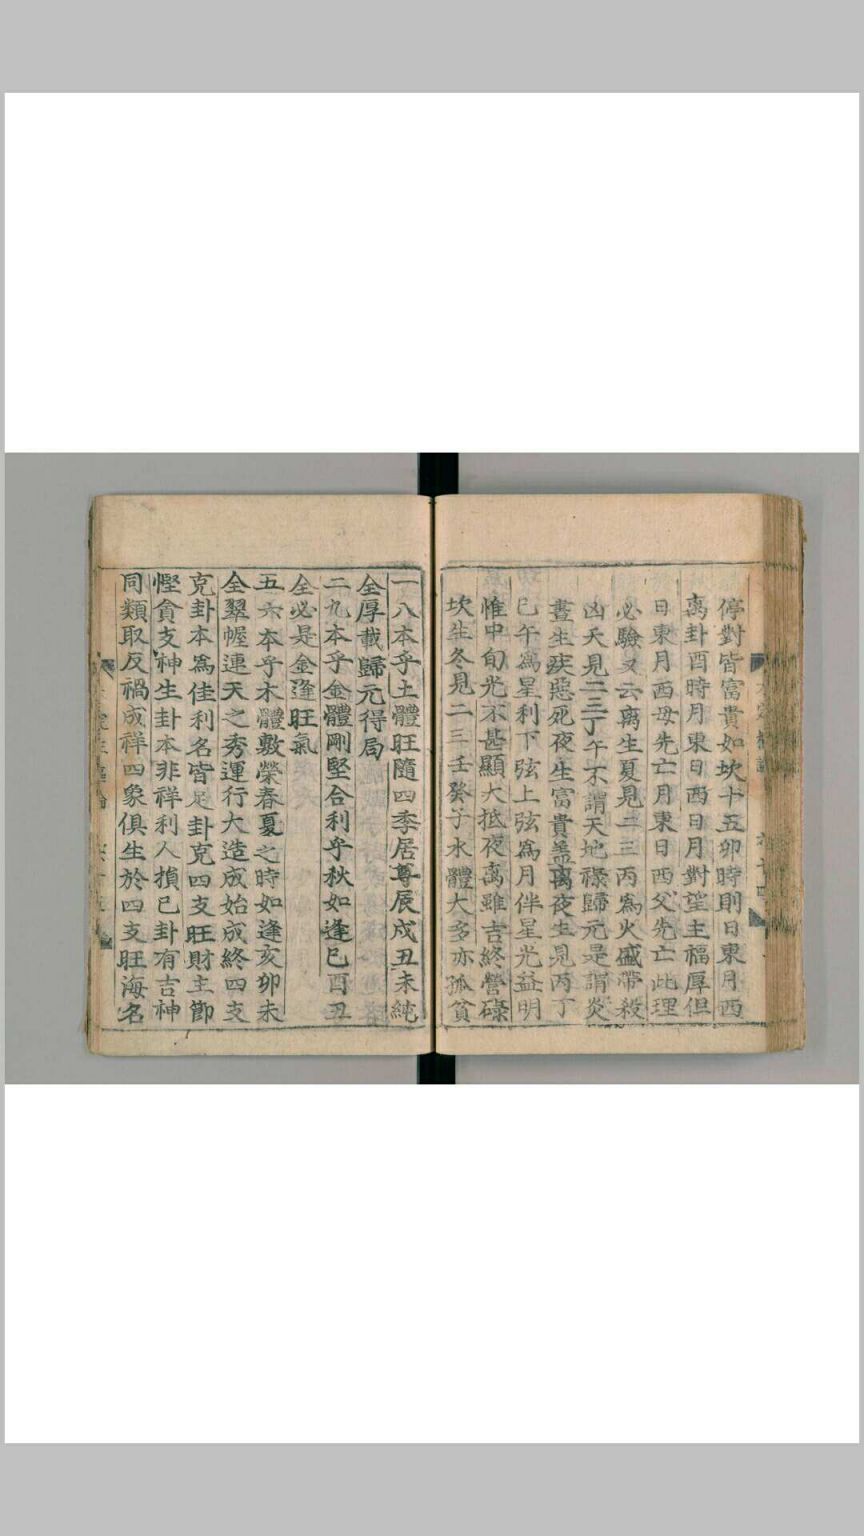 停對皆富貴如坎十五卯時則日東月西
离卦酉時月東日西日月對望主福厚但
日東月西母先亡月東日西父先亡此理
必驗又云离生夏見二三丙為火盛帶殺
凶天見二三丁午不謂天地祿歸元是謂炎
晝生疾惡死夜生富貴盖离夜生見丙丁
巳午為星利下弦上弦為月伴星光益明
惟中旬光不甚顯大抵夜离雖吉終營碌
坎生冬見二三壬癸子水體大多亦孤貧
一八本乎土體旺隨四季居尊辰戌丑未純
全厚載歸元得局
二九本乎金體剛堅合利乎秋如逢巳酉丑
全必是金逢旺氣
五六本乎木體敷榮春夏之時如逢亥卯未
全翠幄連天之秀運行大造成始成終四支
克卦本為佳利名皆足卦克四支旺財主節
慳貪支神生卦本非祥利人損已卦有吉神
同類取反禍成祥四象俱生於四支旺海名